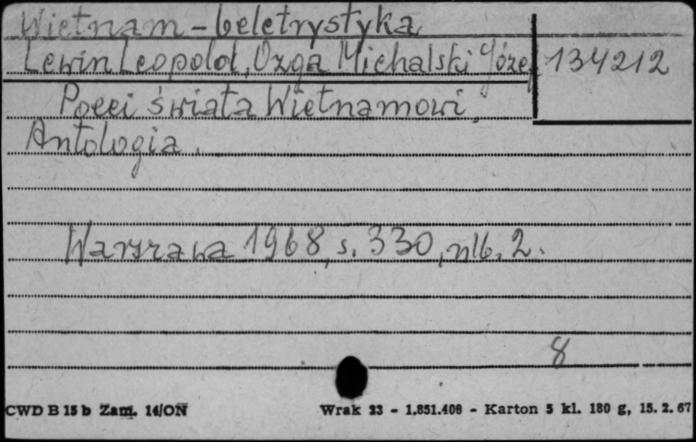 Wietnam - beletrystyka
Lewin Leopold, Ozga Michalski Józef 134212
Poeci świata Wietnamowi.
Antologia.
Warszawa 1968, s. 330, nlb. 2.
8
CWD B 15 b Zam. 14/ON Wrak 23 - 1.851.406 - Karton 5 kl. 180 g, 15. 2. 67